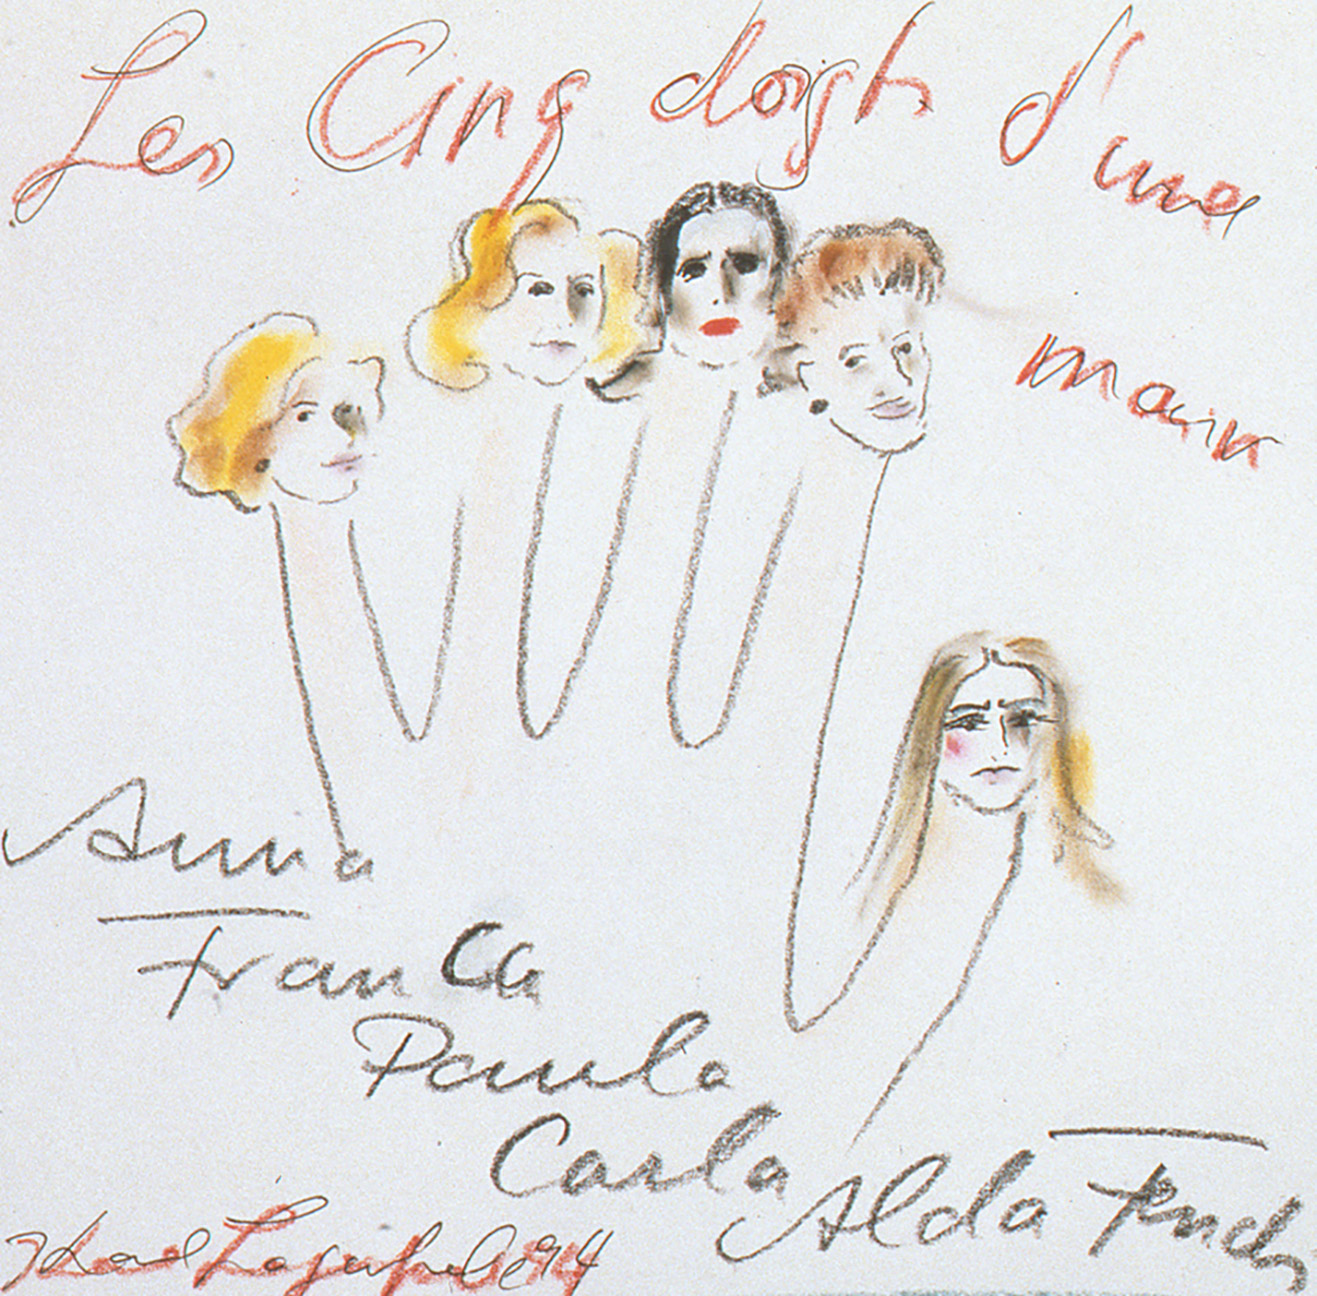 Les Cinq doigts d'une
main
Anna
Franca
Paula
Carla
Alda Fendi
Karl Lagerfeld 94